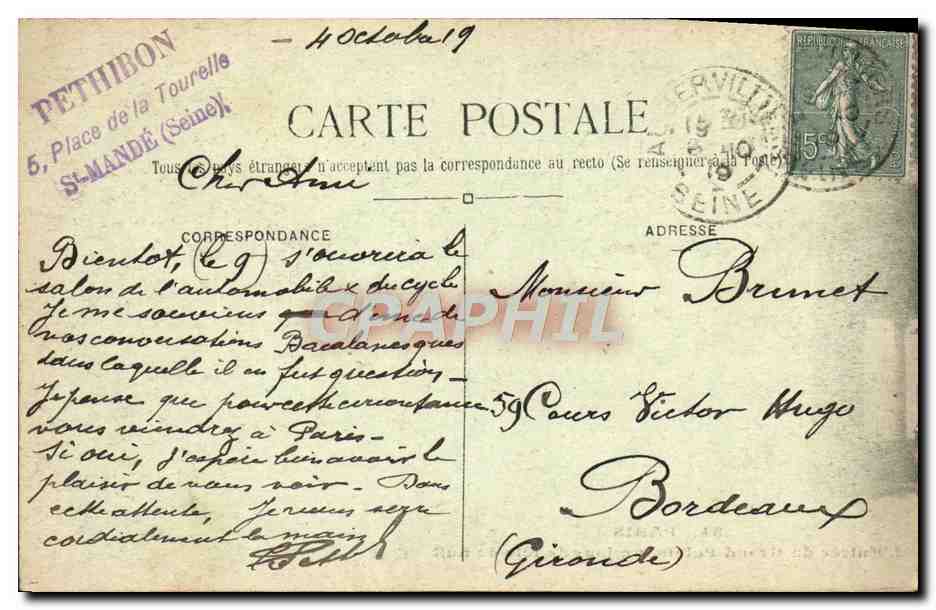 4 Octobre 19
PETHIBON
5, Place de la Tourelle
St-MANDÉ (Seine)
CARTE POSTALE
Tous les pays étrangers n'acceptent pas la correspondance au recto (Se renseigner à la Poste)
RÉPUBLIQUE FRANÇAISE
15c
SEINE
Cher Ami
CORRESPONDANCE
Bientot, (le 9) s'ouvrira le
salon de l'automobile & du cycle
Je me souviens d'une de
vos conversations Bacalanesques
dans laquelle il en fut question -
Je pense que pour cette circonstance
vous viendrez à Paris -
Si oui, j'espère bien avoir le
plaisir de vous voir - Dans
cette attente, Je viens serrer
cordialement la main
ADRESSE
Monsieur Brunet
59 Cours Victor Hugo
Bordeaux
(Gironde)
CPAPHIL